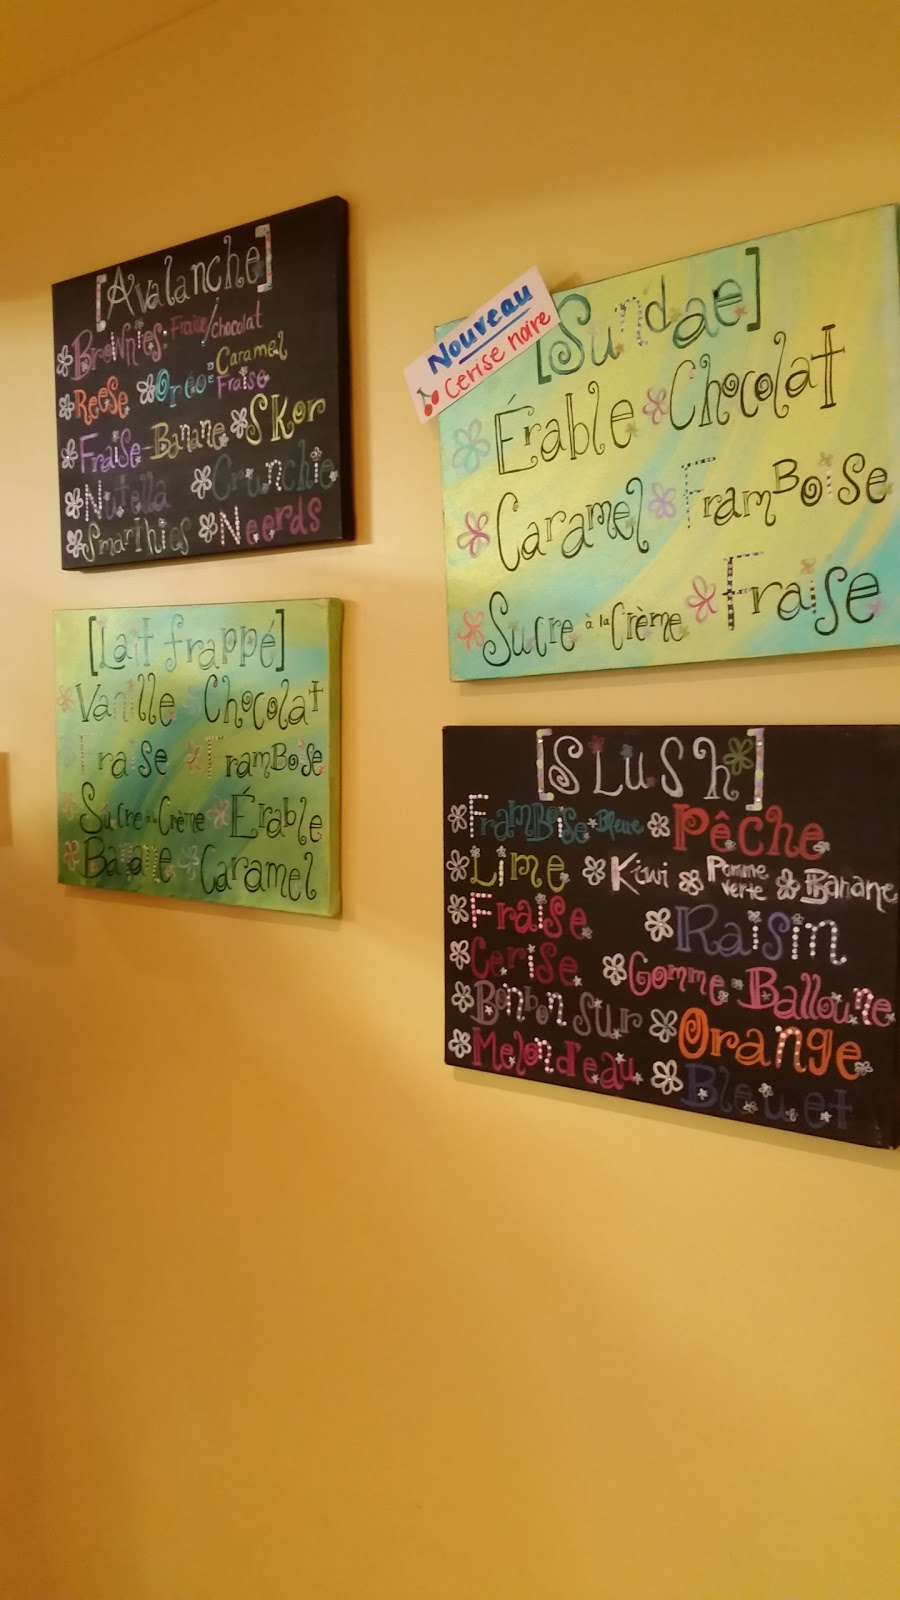 [Avalanche]
Brownies: Fraise/chocolat
Reese Oréo: Caramel
Fraise
Fraise-Banane Skor
Nutella Crunchie
Smarthies Neerds
[Lait frappé]
Vanille Chocolat
Fraise Framboise
Sucre à la Crème Érable
Banane Caramel
Nouveau
Cerise noire
[Sundae]
Érable Chocolat
Caramel Framboise
Sucre à la Crème Fraise
[SLUSh]
Framboise Bleue Pêche
Lime Kiwi Pomme verte Banane
Fraise Raisin
Cerise Gomme Balloune
Bonbon Sur Orange
Melon d'eau Bleuet